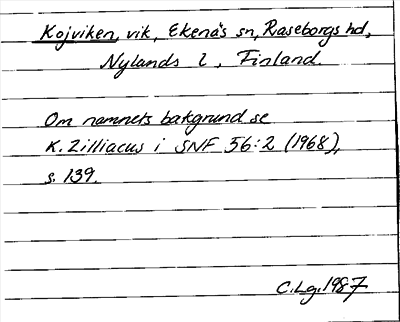 Kojviken, vik, Ekenäs sn, Raseborgs hd,
Nylands l, Finland.
Om namnets bakgrund se
K. Zilliacus i SNF 56:2 (1968),
s. 139.
C.Lg. 1987